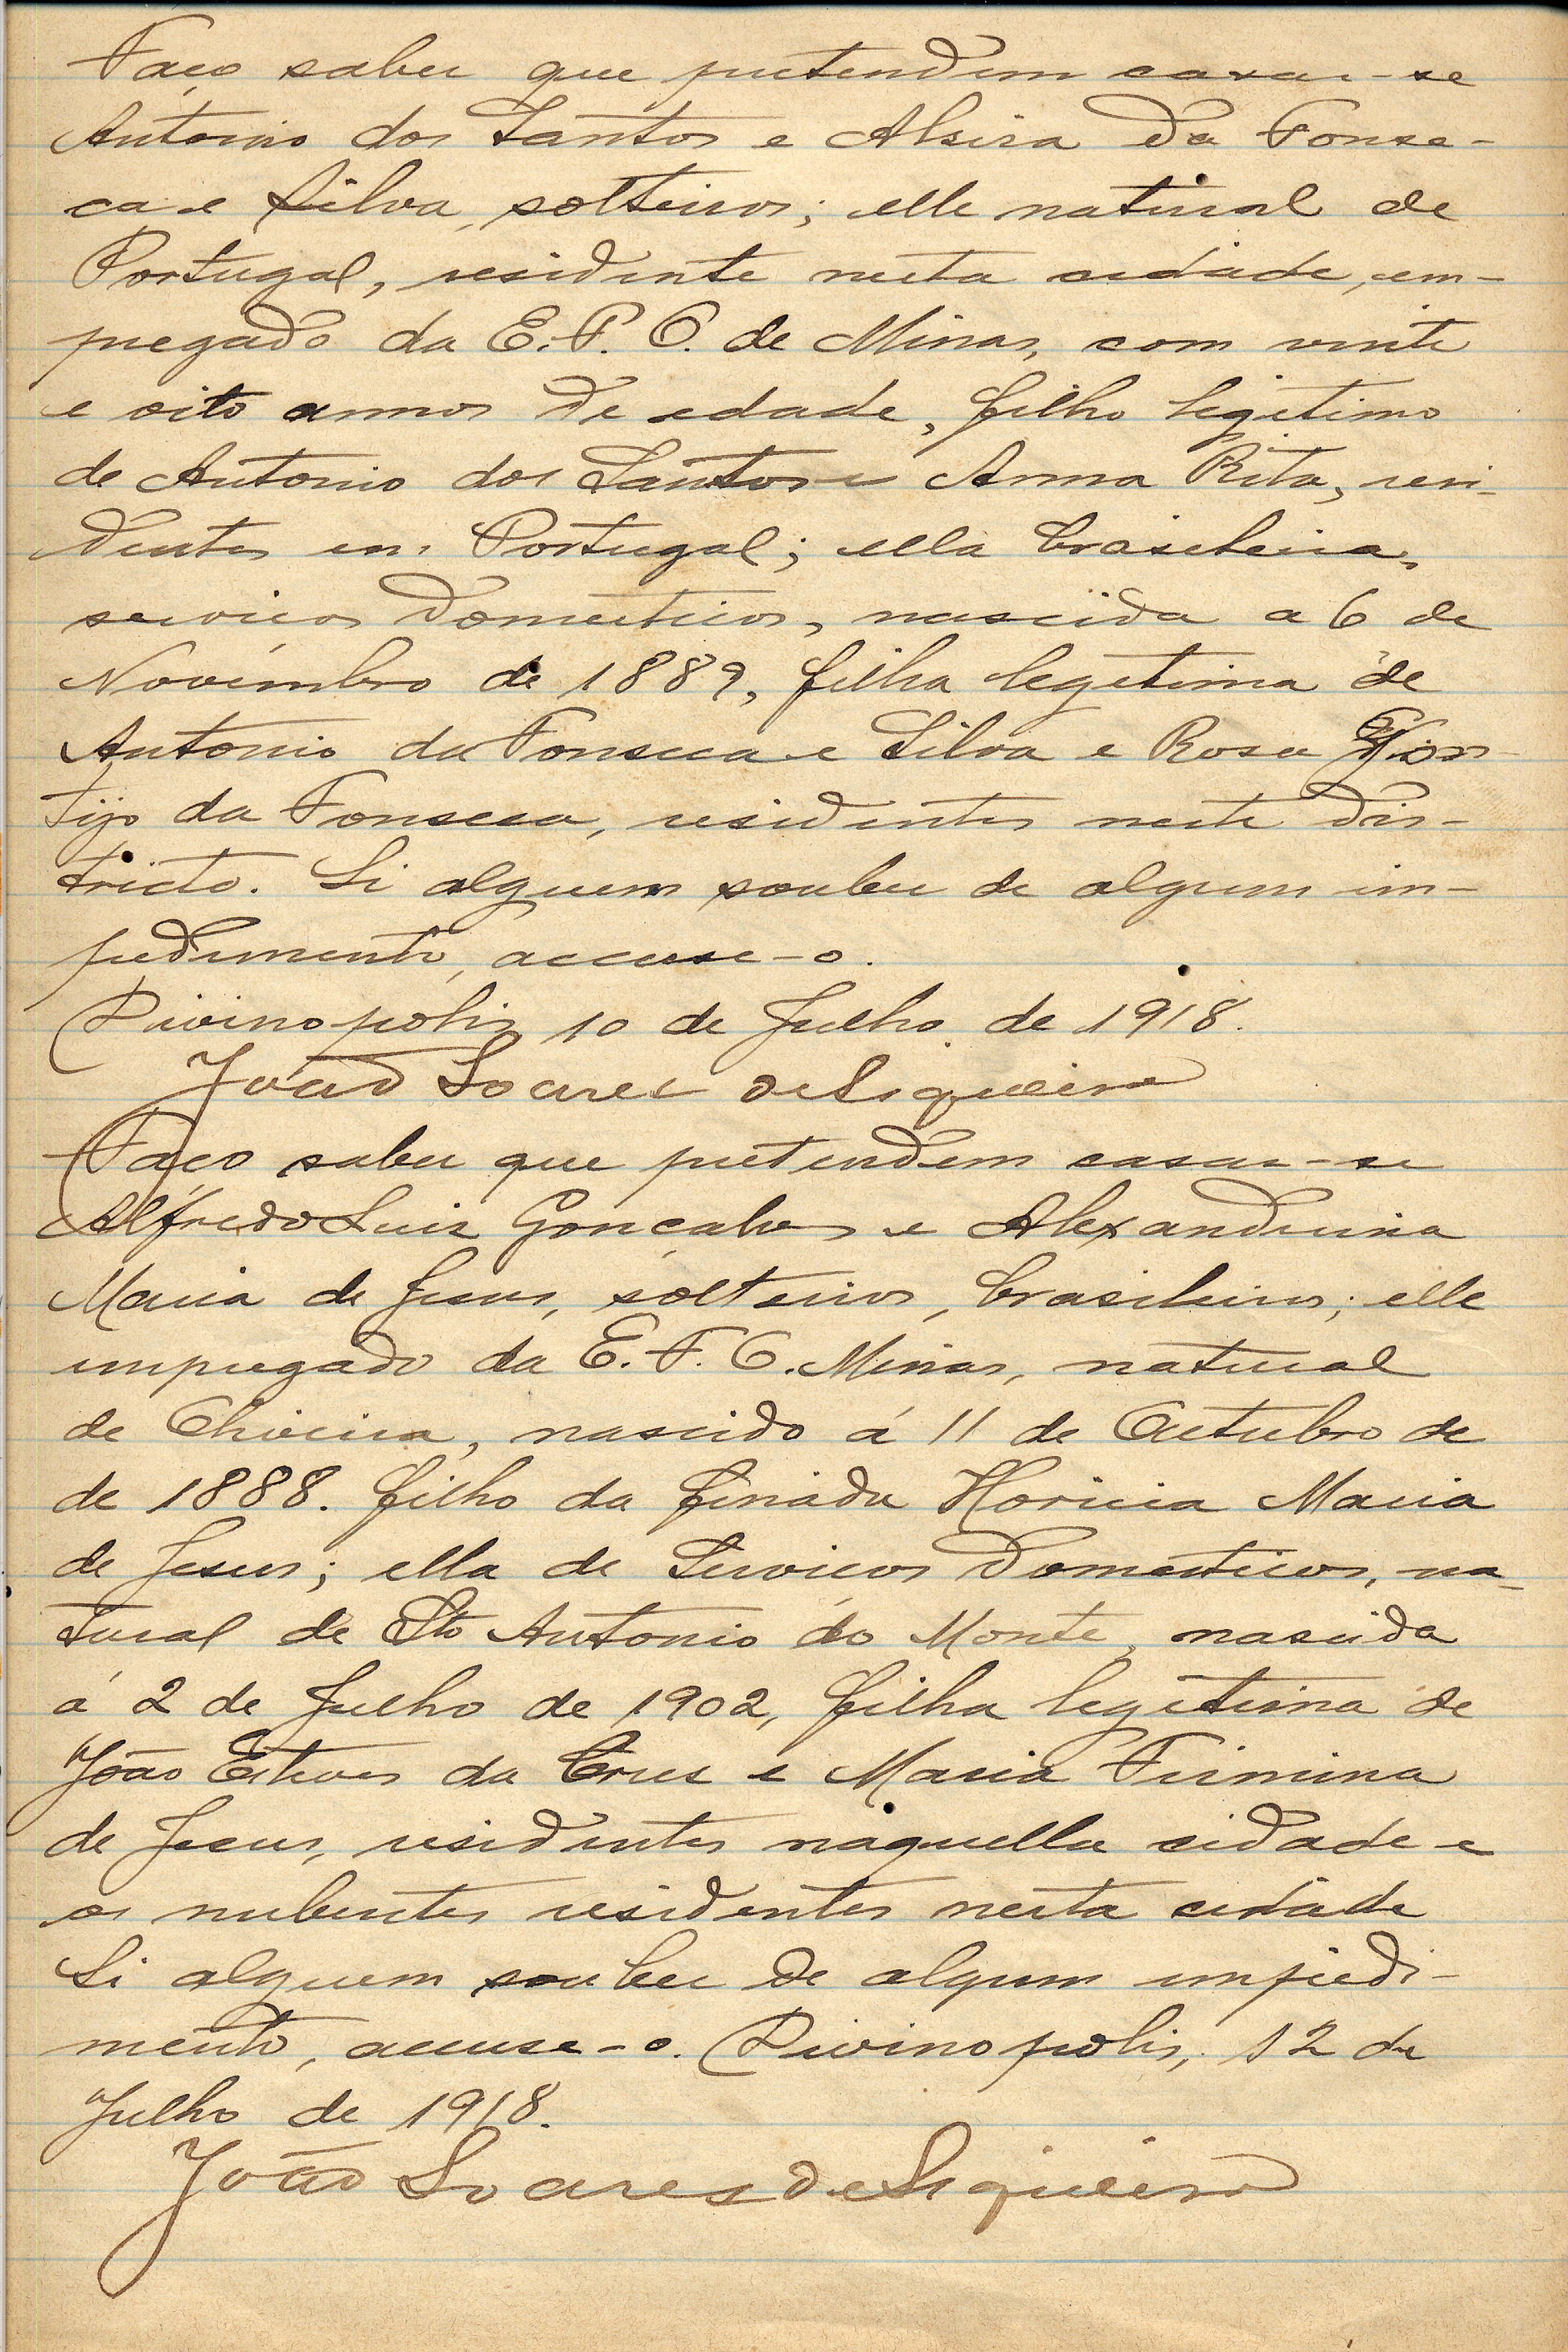 Faço saber que pretendem casar-se
Antonio dos Santos e Alzira da Fonse-
ca e Silva, solteiros; elle natural de
Portugal, residente nesta cidade, em-
pregado da E. F. O. de Minas, com vinte
e oito annos de edade, filho legitimo
de Antonio dos Santos e Anna Rita, resi-
dentes em Portugal; ella brasileira,
serviços domesticos, nascida a 6 de
Novembro de 1889, filha legitima de
Antonio da Fonseca e Silva e Rosa Gon-
tijo da Fonseca, residentes neste dis-
tricto. Si alguem souber de algum im-
pedimento, accuse-o.
Divinopolis, 10 de Julho de 1918.
João Soares de Siqueira
Faço saber que pretendem casar-se
Alfredo Luiz Gonçalves e Alexandrina
Maria de Jesus, solteiros, brasileiros; elle
empregado da E. F. O. Minas, natural
de Oliveira, nascido á 11 de Outubro de
de 1888. filho da finada Horicia Maria
de Jesus; ella de Serviços domesticos, na-
tural de Sto Antonio do Monte, nascida
á 2 de Julho de 1902, filha legitima de
João Esteves da Cruz e Maria Firmina
de Jesus, residentes naquella cidade e
os nubentes residentes nesta cidade
Si alguem souber de algum impedi-
mento, accuse-o. Divinopolis, 12 de
Julho de 1918.
João Soares de Siqueira